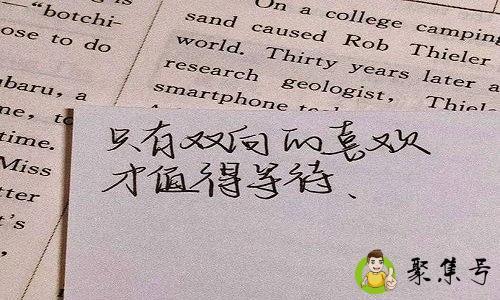 —“botchi-
ose to do
ubaru, a
me, to
time.
Miss
tter
t's
On a college camping
sand caused Rob Thieler
world. Thirty years later a
research geologist, Thiele
smartphone
只有双向的喜欢
才值得等待、
聚集号